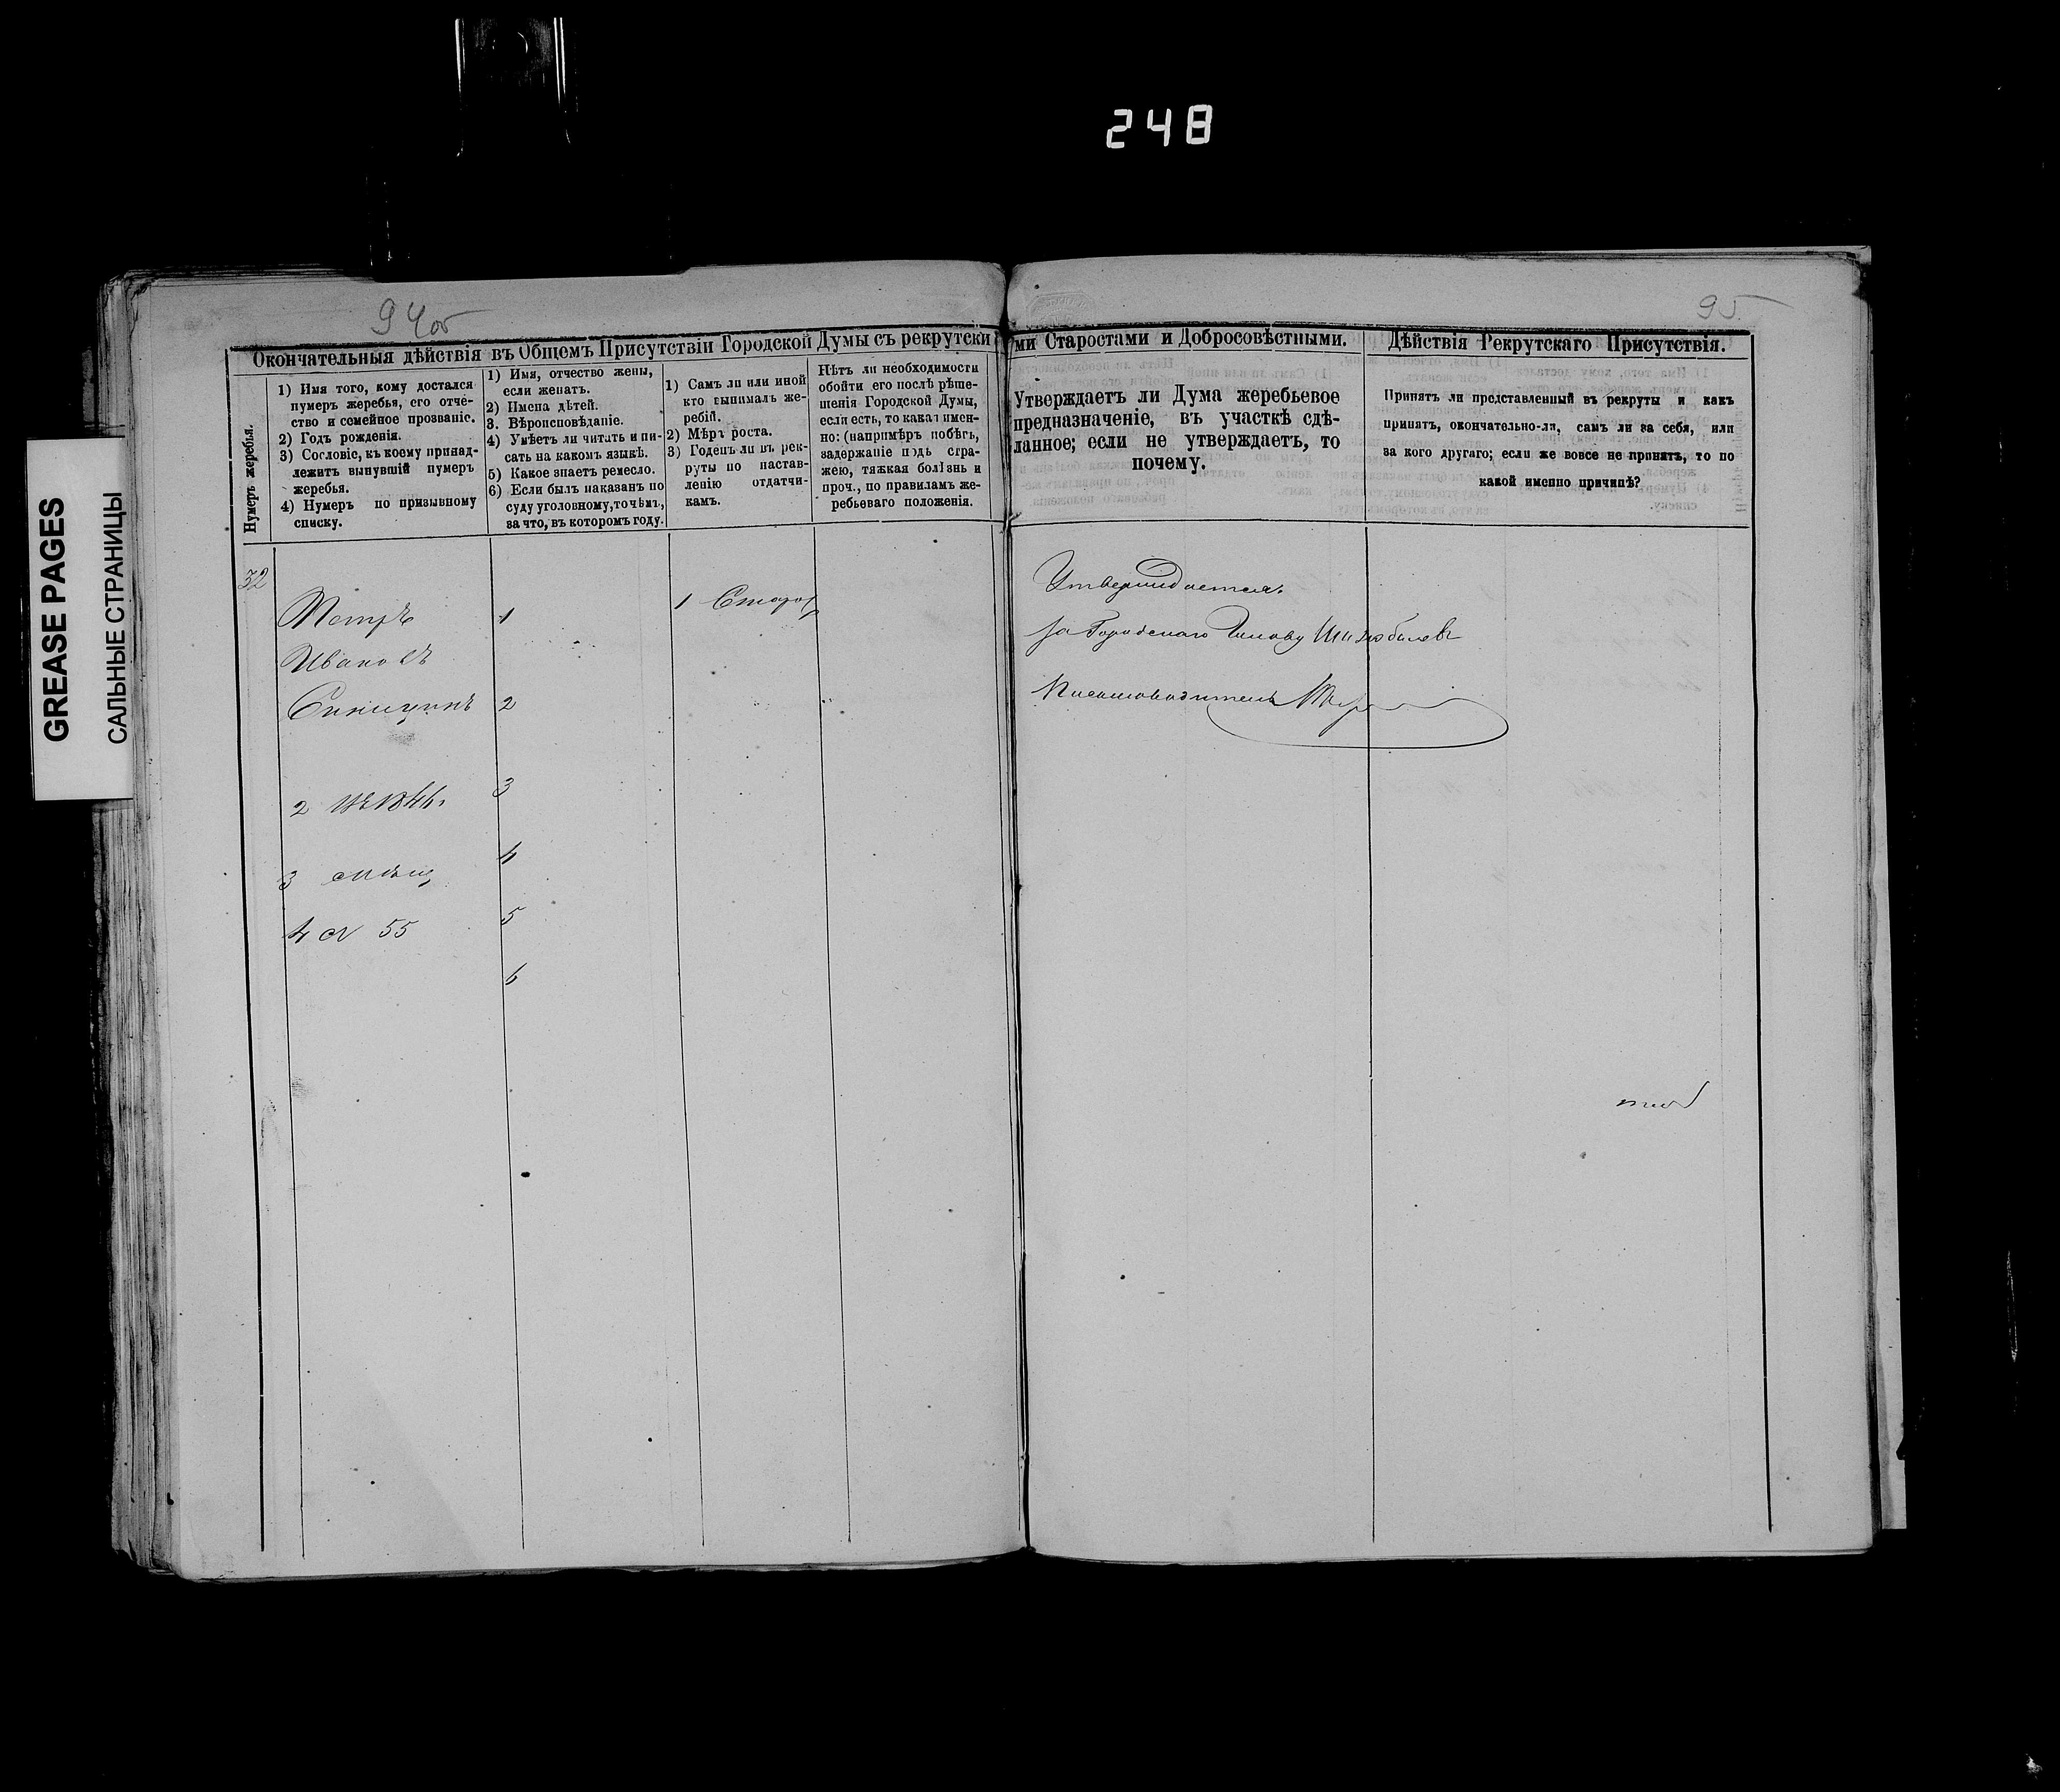 248
GREASE PAGES
САЛЬНЫЕ СТРАНИЦЫ
94 об
95
Окончательныя дѣйствія въ Общемъ Присутствіи Городской Думы съ рекрутски
ми Старостами и Добросовѣстными.
Дѣйствія Рекрутскаго Присутствія.
Нумеръ жеребья.
1) Имя того, кому достался
нумеръ жеребья, его отче-
ство и семейное прозваніе.
2) Годъ рожденія.
3) Сословіе, къ коему принад-
лежитъ вынувшій нумеръ
жеребья.
4) Нумеръ по призывному
списку.
1) Имя, отчество жены,
если женатъ.
2) Имена дѣтей.
3. Вѣроисповѣданіе.
4) Умѣетъ ли читать и пи-
сать на какомъ языкѣ.
5) Какое знаетъ ремесло.
6) Если былъ наказанъ по
суду уголовному, то чѣмъ,
за что, въ которомъ году.
1) Самъ ли или иной
кто вынималъ же-
ребій.
2) Мѣръ роста.
3) Годенъ ли въ рек-
руты по настав-
ленію отдатчи-
камъ.
Нѣтъ ли необходимости
обойти его послѣ рѣше-
шенія Городской Думы,
если есть, то какая имен-
но: (напримѣръ побѣгъ,
задержаніе подъ стра-
жею, тяжкая болѣзнь и
проч., по правиламъ же-
ребьеваго положенія.
Утверждаетъ ли Дума жеребьевое
предназначеніе, въ участкѣ сдѣ-
ланное; если не утверждаетъ, то
почему.
Принятъ ли представленный въ рекруты и какъ
принятъ, окончательно-ли, самъ ли за себя, или
за кого другаго; если же вовсе не принятъ, то по
какой именно причинѣ?
32
Петръ
Ивановъ
Синицинъ
2 1846
3 мѣщ
4 № 55
1
2
3
4
5
6
1 Старос
Утверждается.
За Городскаго Голову
Письмоводитель